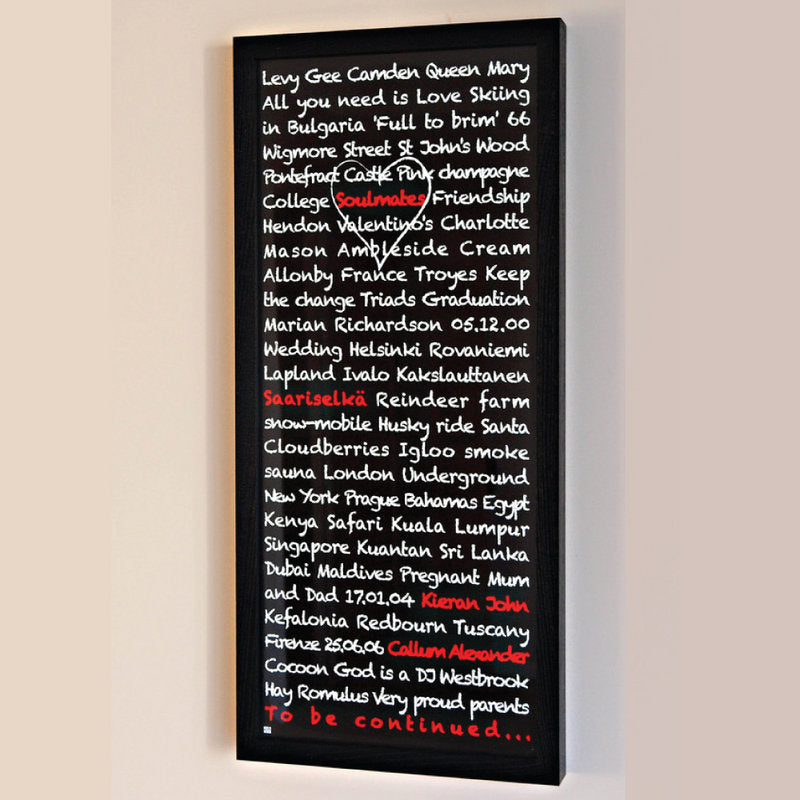 Levy Gee Camden Queen Mary
All you need is Love Skiing
in Bulgaria 'Full to brim' 66
Wigmore Street St John's Wood
Pontefract Castle Pink champagne
College Soulmates Friendship
Hendon Valentino's Charlotte
Mason Ambleside Cream
Allonby France Troyes Keep
the change Triads Graduation
Marian Richardson 05.12.00
Wedding Helsinki Rovaniemi
Lapland Ivalo Kakslauttanen
Saariselkä Reindeer farm
snow-mobile Husky ride Santa
Cloudberries Igloo smoke
sauna London Underground
New York Prague Bahamas Egypt
Kenya Safari Kuala Lumpur
Singapore Kuantan Sri Lanka
Dubai Maldives Pregnant Mum
and Dad 17.01.04 Kieran John
Kefalonia Redbourn Tuscany
Firenze 25.06.06 Callum Alexander
Cocoon God is a DJ Westbrook
Hay Romulus Very proud parents
To be continued...